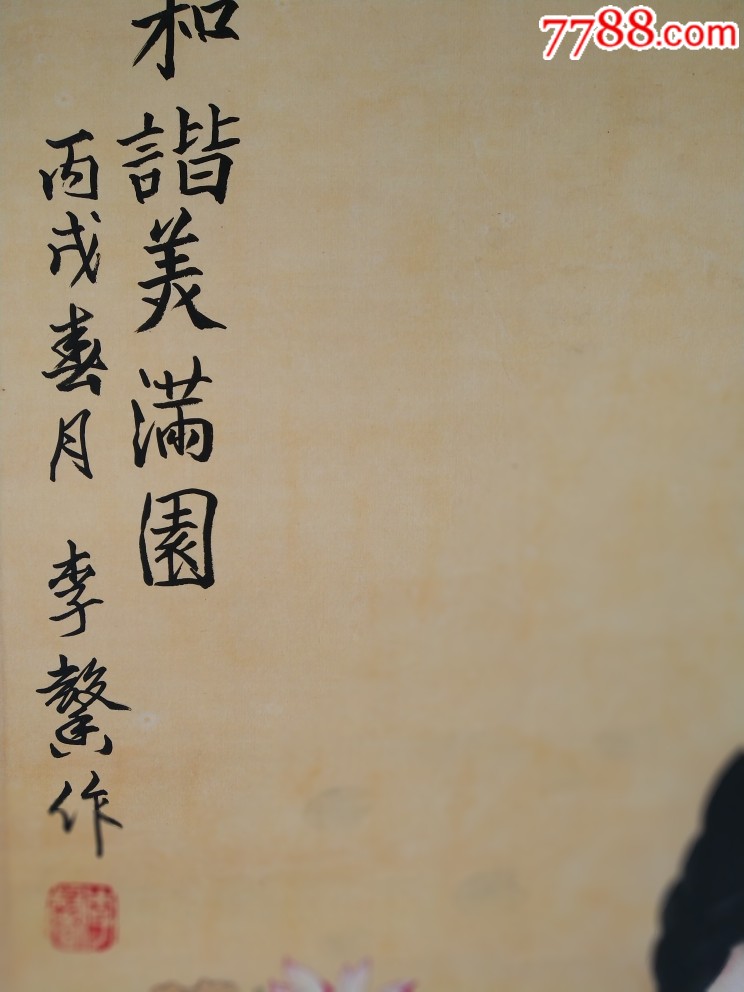 7788.com
和諧美滿園
丙戌春月 李驁作